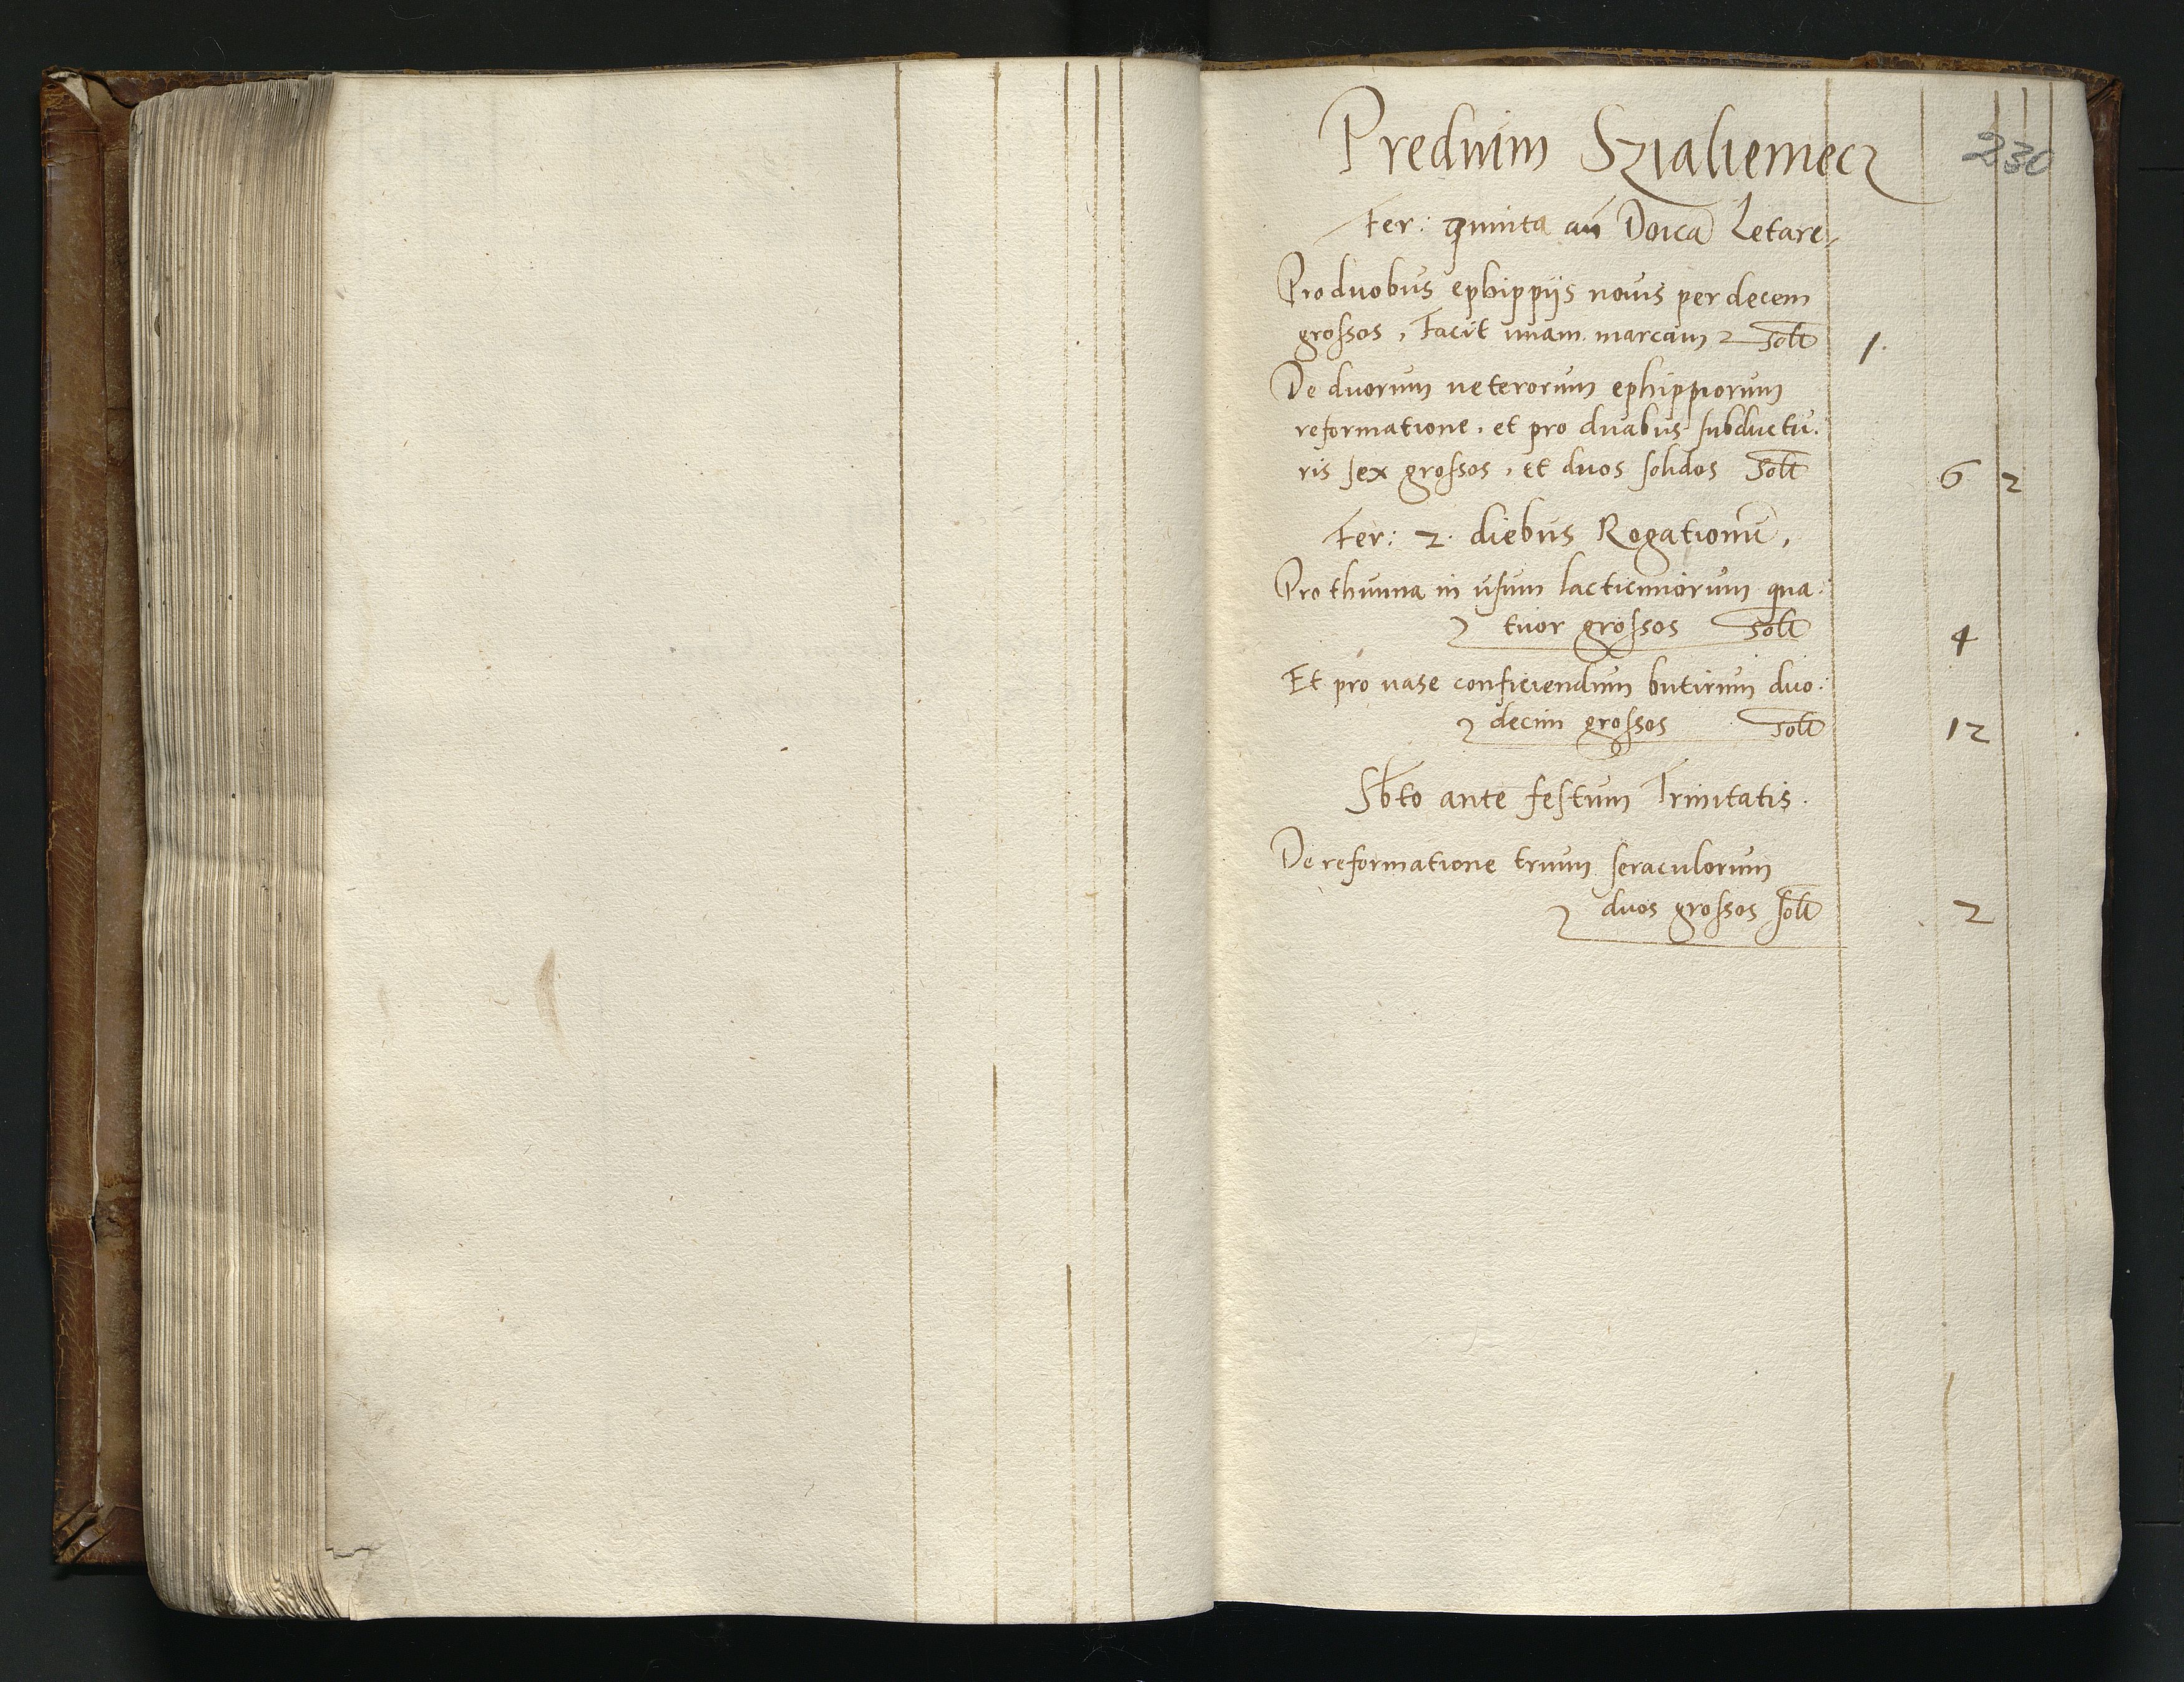 Predium Szialiemecz
230
Fer: quinta an̄ Doīca Letare
Pro duobus ephippijs nouis per decem
grossos, Facit unam marcam solt 1.
De duorum ueterorum ephippiorum
reformatione, et pro duabus subductu:
ris sex grossos, et duos solidos Solt 6 2
Fer: 2. diebus Rogationū,
Pro thunna in usum lacticiniorum qua:
tuor grossos Solt 4
Et pro uase conficiendum butirum duo:
decim grossos Solt 12
Sbto ante festum Trinitatis.
De reformatione trium seraculorum
duos grossos solt 2